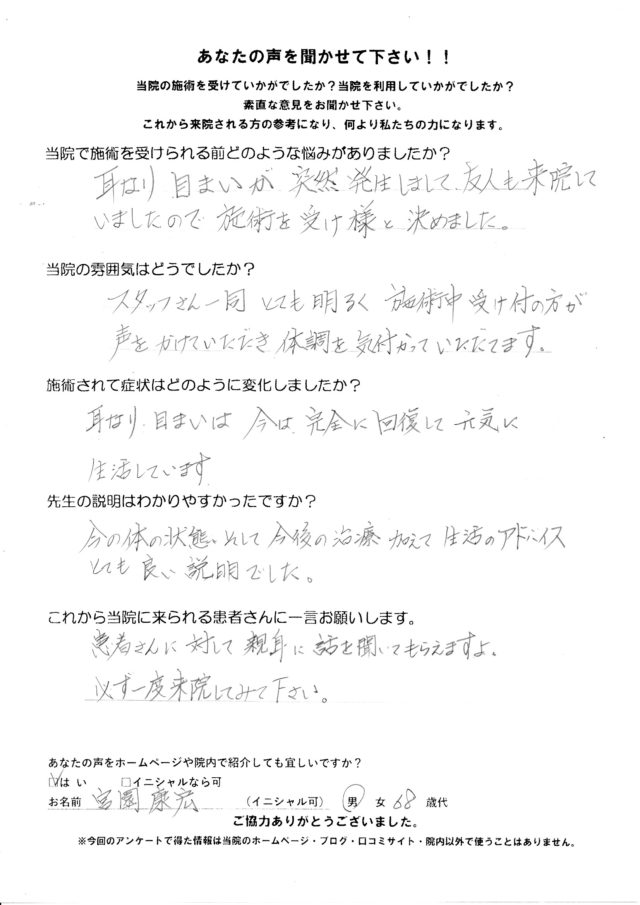 あなたの声を聞かせて下さい！！
当院の施術を受けていかがでしたか？当院を利用していかがでしたか？
素直な意見をお聞かせ下さい。
これから来院される方の参考になり、何より私たちの力になります。
当院で施術を受けられる前どのような悩みがありましたか？
耳なり 目まいが 突然 発生しまして、友人も来院して
いましたので 施術を受け様と 決めました。
当院の雰囲気はどうでしたか？
スタッフさん一同 とても明るく 施術中 受け付の方が
声をかけていただき 体調を気付かっていただてます。
施術されて症状はどのように変化しましたか？
耳なり、目まいは 今は、完全に回復して 元気に
生活しています
先生の説明はわかりやすかったですか？
今の体の状態、そして今後の治療 加えて 生活のアドバイス
とても 良い 説明でした。
これから当院に来られる患者さんに一言お願いします。
患者さんに 対して 親身に 話を聞いてもらえますよ。
必ず一度来院してみて下さい。
あなたの声をホームページや院内で紹介しても宜しいですか？
☑はい □イニシャルなら可
お名前 宮園 康宏 （イニシャル可） 男 女 68 歳代
ご協力ありがとうございました。
※今回のアンケートで得た情報は当院のホームページ・ブログ・口コミサイト・院内以外で使うことはありません。